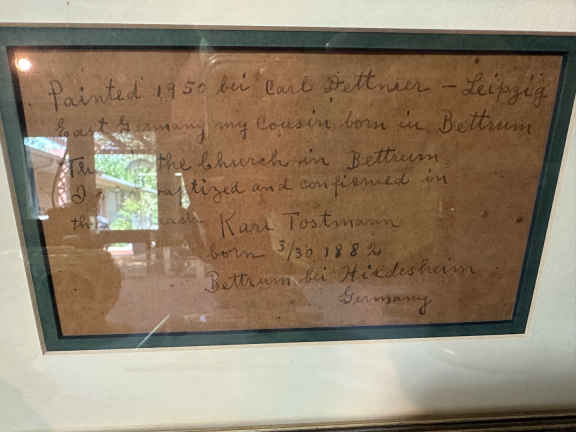 Painted 1950 bei Carl Dettmer – Leipzig
East Germany my Cousin, born in Bettrum
the Church in Bettrum
I baptized and confirmed in
Karl Tostmann
born 3/30 1882
Bettrum bei Hildesheim
Germany